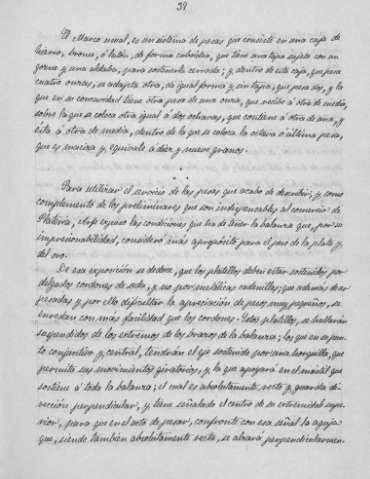 39
El Marco usual, es un sistema de pesas que consiste en una caja de
hierro, bronce, ó latón, de forma cubrilete, que tiene una tapa sujeta con un
gozne y una aldaba, para sostenerla cerrada; y dentro de esta caja, que pesa
cuatro onzas, se adapta otra, de igual forma y sin tapa, que pesa dos, y la
que en su concavidad tiene otra peso de una onza, que recibe á otra de media,
sobre la que se coloca otra igual á dos ochavas, que contiene á otra de una, y
ésta á otra de media, dentro de la que se coloca la octava ó última pesa,
que es maciza y equivale á diez y nueve granos.
Para utilizar el servicio de las pesas que acabo de describir; y como
complemento de los preliminares que son indispensables al comercio de
Platería, expuso las condiciones que ha de tener la balanza que, por su
impresionabilidad, consideró más apropósito para el peso de la plata y
del oro.
De esa exposición se deduce, que los platillos deben estar sostenidos por
delgados cordones de seda, y no por metálicas cadenillas; que además de ser
pesadas y por ello dificultar la apreciación de pesos muy pequeños, se
enredan con más facilidad que los cordones. Estos platillos, se hallarán
suspendidos de los extremos de los brazos de la balanza; los que en su punto
conjuntivo y central, tendrán el eje sostenido por una horquilla, que
permita sus movimientos giratorios, y la que apoyará en el mástil que
sostiene á toda la balanza; el cual es absolutamente recto y guarda di-
rección perpendicular, y tiene señalado el centro de su extremidad supe-
rior, para que en el acto de pesar, confronte con esa señal la aguja
que, siendo también absolutamente recta, se alzará perpendicularmen-